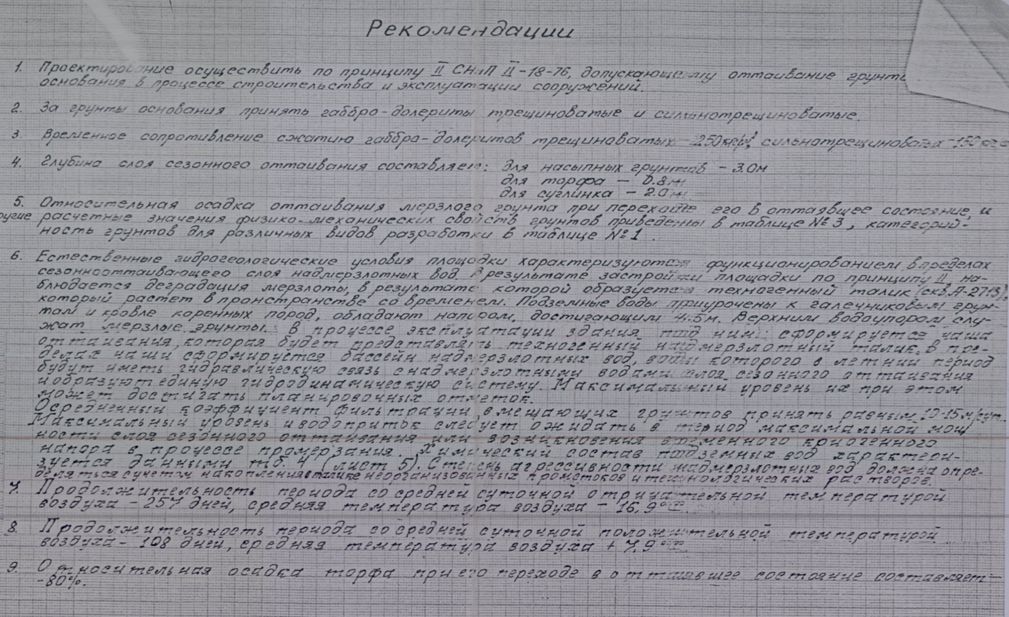 Рекомендации
1. Проектирование осуществить по принципу II СНиП II-18-76, допускающему оттаивание грунта
основания в процессе строительства и эксплуатации сооружений.
2. За грунты основания принять габбро-долериты трещиноватые и сильнотрещиноватые.
3. Временное сопротивление сжатию габбро-долеритов трещиноватых -250кг/см² сильнотрещиноватых
4. Глубина слоя сезонного оттаивания составляет: для насыпных грунтов - 3.0м
для торфа - 0.8м
для суглинка - 2.0м
5. Относительная осадка оттаивания мерзлого грунта при переходе его в оттаявшее состояние, и
другие расчетные значения физико-механических свойств грунтов приведены в таблице №3, категорий-
ность грунтов для различных видов разработки в таблице №1.
6. Естественные гидрогеологические условия площадки характеризуются функционированием в пределах
сезоннооттаивающего слоя надмерзлотных вод. В результате застройки площадки по принципу II, на-
блюдается деградация мерзлоты, в результате которой образуется техногенный талик
который растет в пространстве со временем. Подземные воды приурочены к галечниковым грун-
там и кровле коренных пород, обладают напором, достигающим 4.5м. Верхним водоупором слу-
жат мерзлые грунты. В процессе эксплуатации здания под ним сформируется чаша
оттаивания, которая будет представлять техногенный надмерзлотный талик. В пре-
делах чаши сформируется бассейн надмерзлотных вод, воды которого в летний период
будут иметь гидравлическую связь с надмерзлотными водами слоя сезонного оттаивания
и образуют единую гидродинамическую систему. Максимальный уровень их при этом
может достигать планировочных отметок.
Осредненный коэффициент фильтрации вмещающих грунтов принять равным 10-15м/сут.
Максимальный уровень и водоприток следует ожидать в период максимальной мощ
ности слоя сезонного оттаивания или возникновения временного криогенного
напора в процессе промерзания. Химический состав подземных вод характери-
зуется данными таб. 4 (лист 5). Степень агрессивности надмерзлотных вод должна опре-
деляться с учетом накопления в талике неорганизованных промстоков и технологических растворов.
7. Продолжительность периода со средней суточной отрицательной температурой
воздуха - 257 дней, средняя температура воздуха - 16,9°
8. Продолжительность периода со средней суточной положительной температурой
воздуха - 108 дней, средняя температура воздуха + 7,9°
9. Относительная осадка торфа при его переходе в оттаявшее состояние составляет-
-80%.